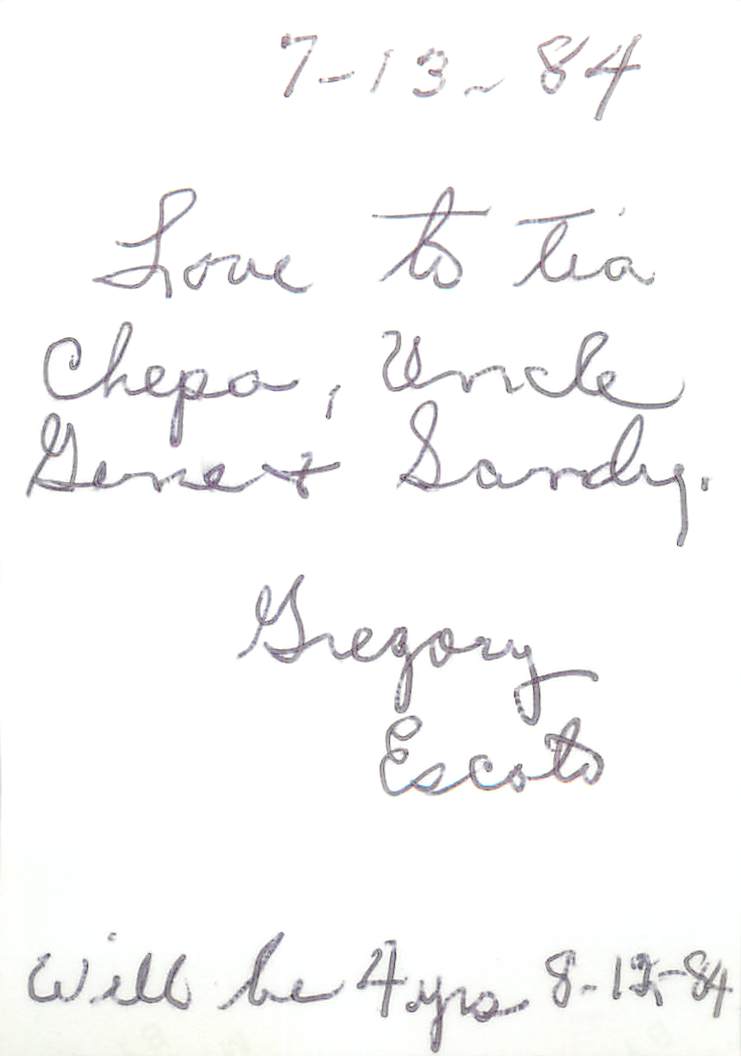 7-13-84
Love to tia
Chepa, Uncle
Gene + Sandy.
Gregory
Escoto
Will be 4 yrs 8-12-84